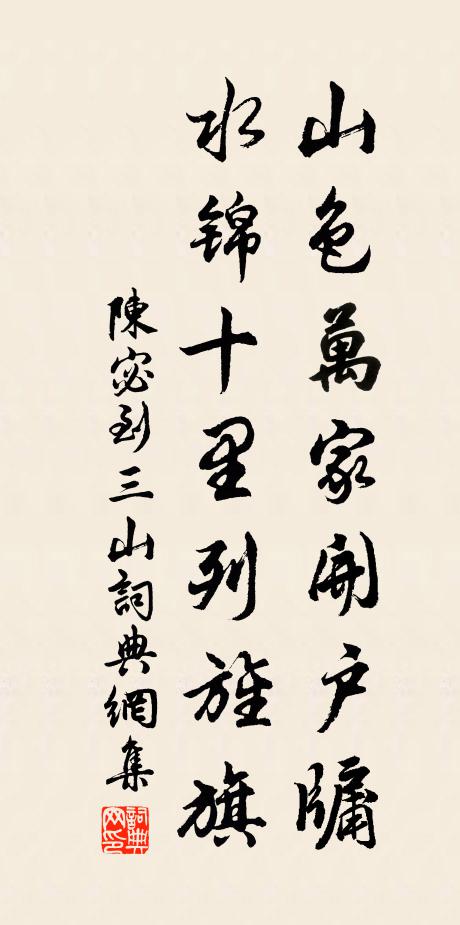 山色萬家開戶牖
水錦十里列旌旗
陳宓到三山詞典網集
詞典網印